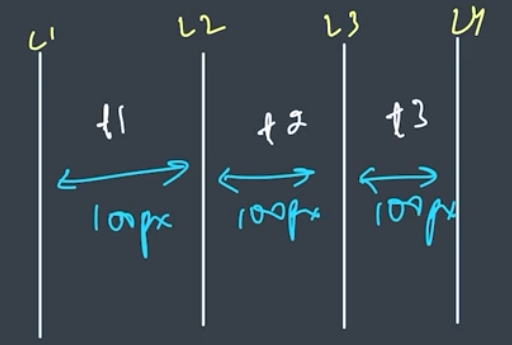 L1 L2 L3 L4
t1 t2 t3
100px 100px 100px